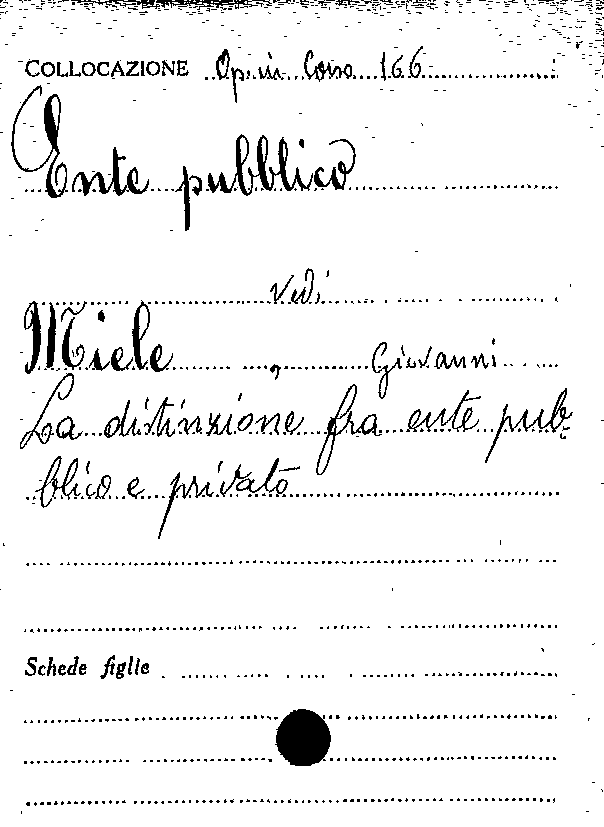 COLLOCAZIONE Op. in Corso 166
Ente pubblico
Vedi
Miele , Giovanni
La distinzione fra ente pub-
blico e privato
Schede figlie